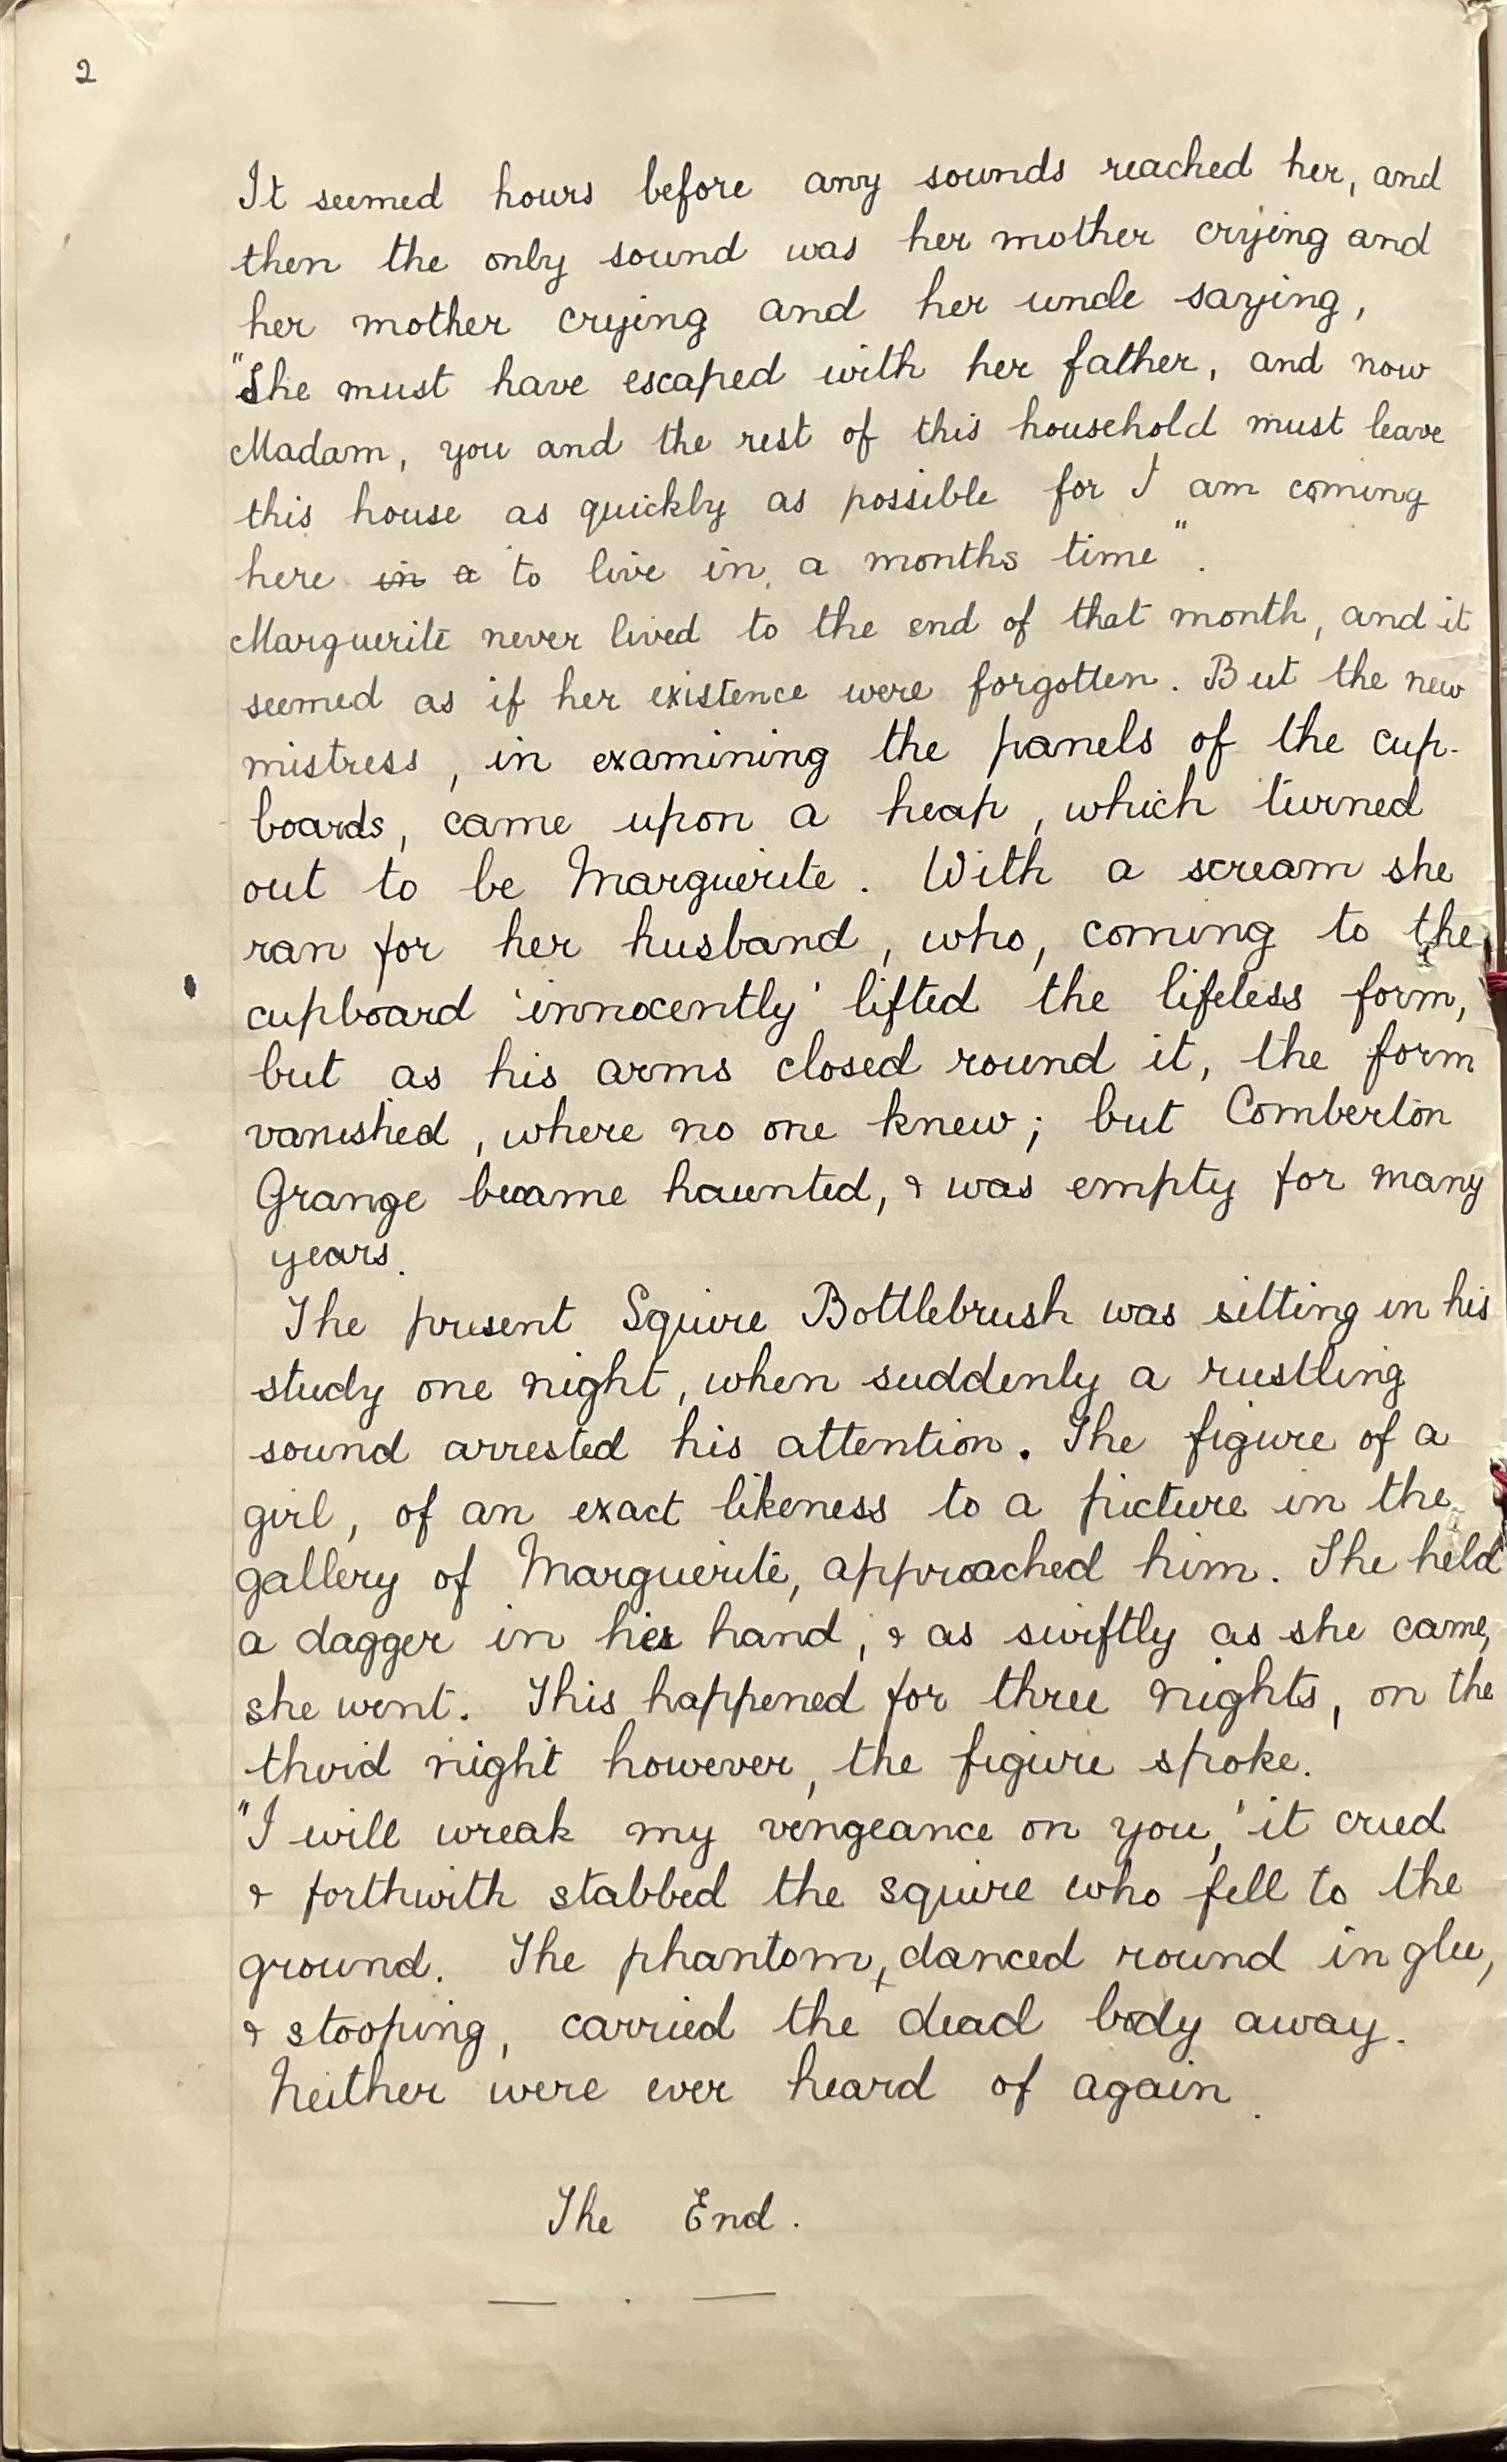 2
It seemed hours before any sounds reached her, and
then the only sound was her mother crying and
her mother crying and her uncle saying,
"She must have escaped with her father, and now
Madam, you and the rest of this household must leave
this house as quickly as possible for I am coming
here in a to live in a months time".
Marguerite never lived to the end of that month, and it
seemed as if her existence were forgotten. But the new
mistress, in examining the panels of the cup-
boards, came upon a heap, which turned
out to be Marguerite. With a scream she
ran for her husband, who, coming to the
cupboard 'innocently' lifted the lifeless form,
but as his arms closed round it, the form
vanished, where no one knew; but Comberton
Grange became haunted, & was empty for many
years.
The present Squire Bottlebrush was sitting in his
study one night, when suddenly a rustling
sound arrested his attention. The figure of a
girl, of an exact likeness to a picture in the
gallery of Marguerite, approached him. She held
a dagger in her hand, & as swiftly as she came,
she went. This happened for three nights, on the
third night however, the figure spoke.
"I will wreak my vengeance on you," it cried
& forthwith stabbed the squire who fell to the
ground. The phantom, danced round in glee,
& stooping, carried the dead body away.
Neither were ever heard of again.
The End.